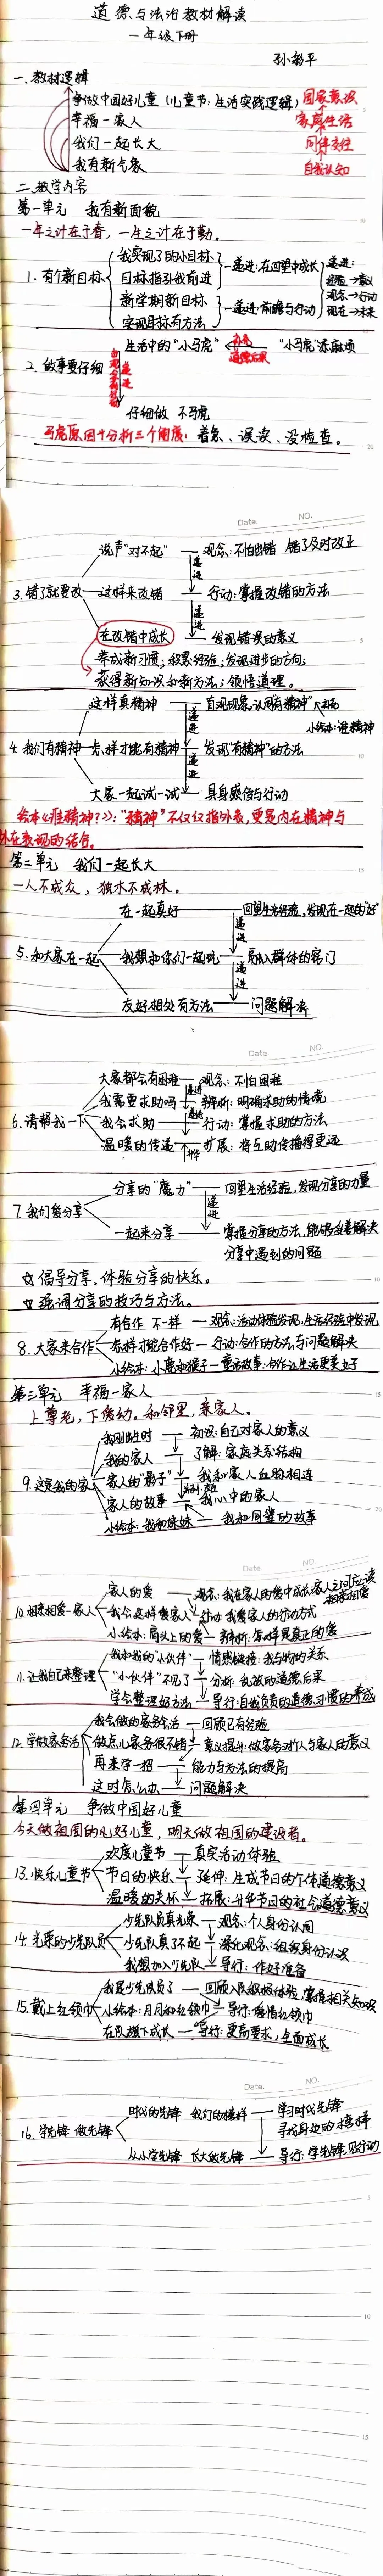 道德与法治教材解读
一年级下册
一、教材逻辑
争做中国好儿童（儿童节：生活实践逻辑） 国家意识
幸福一家人 家庭生活
我们一起长大 同伴交往
我有新气象 自我认知
二、教学内容
第一单元 我有新面貌
一年之计在于春，一生之计在于勤。
1. 有个新目标
我实现了的小目标
目标指引我前进
一递进：在回望中成长
新学期新目标
实现目标有方法
一递进：前瞻与行动
递进：
经验→意义
观念→行动
现在→未来
2. 做事要仔细
生活中的“小马虎” “小马虎”添麻烦
道德后果
递进
仔细做 不马虎
马虎原因十分析三个角度：着急、误读、没检查。
Date. NO.
3. 错了就要改
说声“对不起” — 观念：不怕出错 错了及时改正
递进
这样来改错 — 行动：掌握改错的方法
递进
在改错中成长 — 发现错误的意义
养成新习惯；积累经验；发现进步的方向；
获得新知识和新方法；领悟道理。
4. 我们有精神
这样真精神 — 直观现象，认同“有精神” 补充
小绘本：谁精神
递进
怎样才能有精神 — 发现“有精神”的方法
递进
大家一起试一试 — 具身感悟与行动
绘本《谁精神？》：“精神”不仅仅指外表，更是内在精神与
外在表现的结合。
第二单元 我们一起长大
一人不成众，独木不成林。
5. 和大家在一起
在一起真好 — 回望生活经验，发现在一起的“好”
递进
我想和你们一起玩 — 融入群体的窍门
递进
友好相处有方法 — 问题解决
Date. NO.
6. 请帮我一下
大家都会有困难 — 观念：不怕困难
我需要求助吗 — 辨析：明确求助的情境
我会求助 — 行动：掌握求助的方法
温暖的传递 — 扩展：将互助传播得更远
7. 我们爱分享
分享的“魔力” — 回望生活经验，发现分享的力量
递进
一起来分享 — 掌握分享的方法，能够妥善解决
分享中遇到的问题
☆ 倡导分享，体验分享的快乐。
☆ 强调分享的技巧与方法。
8. 大家来合作
有合作 不一样 — 观念：活动体验发现，生活经验中发现
怎样才能合作好 — 行动：合作的方法与问题解决
小绘本：小鹿和猴子 — 童话故事：合作让生活更美好
第三单元 幸福一家人
上尊老，下爱幼。和邻里，亲家人。
9. 这是我的家
我刚出生时 — 初识：自己对家人的意义
我的家人 — 了解：家庭关系结构
家人的“影子” — 我和家人血脉相连
家人的故事 — 我心中的家人
小绘本：我和妹妹 — 我和同辈的故事
Date. NO.
10. 相亲相爱一家人
家人的爱 — 观念：我在家人的爱中成长，家人之间应该
相亲相爱
我会这样爱家人 — 行动：我爱家人的行动方式
小绘本：肩头上的爱 — 辨析：怎样是真正的爱
11. 让我自己来整理
我和我的“小伙伴” — 情感链接：我与物的关系
“小伙伴”不见了 — 分析：乱放的道德后果
学会整理好方法 — 导行：自我负责的道德习惯的养成
12. 学做家务活
我会做的家务活 — 回顾已有经验
做点儿家务很不错 — 意义提升：做家务对个人与家人的意义
再来学一招 — 能力与方法的提高
这时怎么办 — 问题解决
第四单元 争做中国好儿童
今天做祖国的儿好儿童，明天做祖国的建设者。
13. 快乐儿童节
欢度儿童节 — 真实活动体验
节日的快乐 — 延伸：生成节日的个体道德意义
温暖的关怀 — 拓展：升华节日的社会道德意义
14. 光荣的少先队员
少先队员真光荣 — 观念：个人身份认同
少先队真了不起 — 深化观念：组织身份认识
我想加入少先队 — 导行：作好准备
15. 戴上红领巾
我是少先队员了 — 回顾入队积极体验，掌握相关知识
小绘本：月月和红领巾 — 导行：爱惜红领巾
在队旗下成长 — 导行：更高要求，全面成长
Date. NO.
16. 学先锋 做先锋
时代的先锋 我们的榜样 — 学习时代先锋
寻找身边的榜样
从小学先锋 长大做先锋 — 导行：学先锋见行动